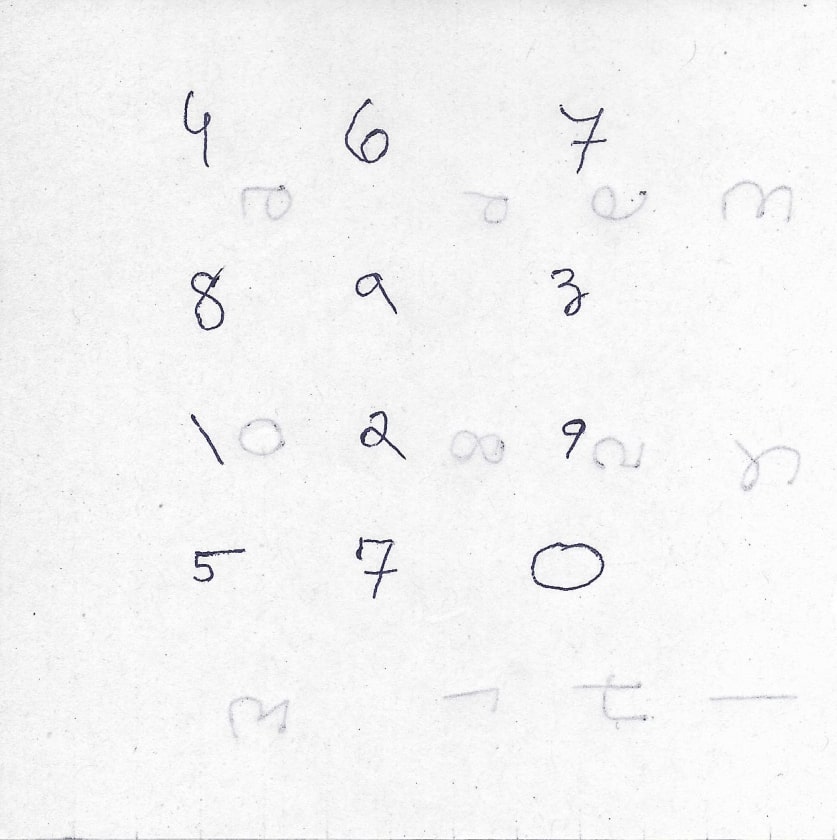 4 6 7
8 9 3
1 2 9
5 7 0